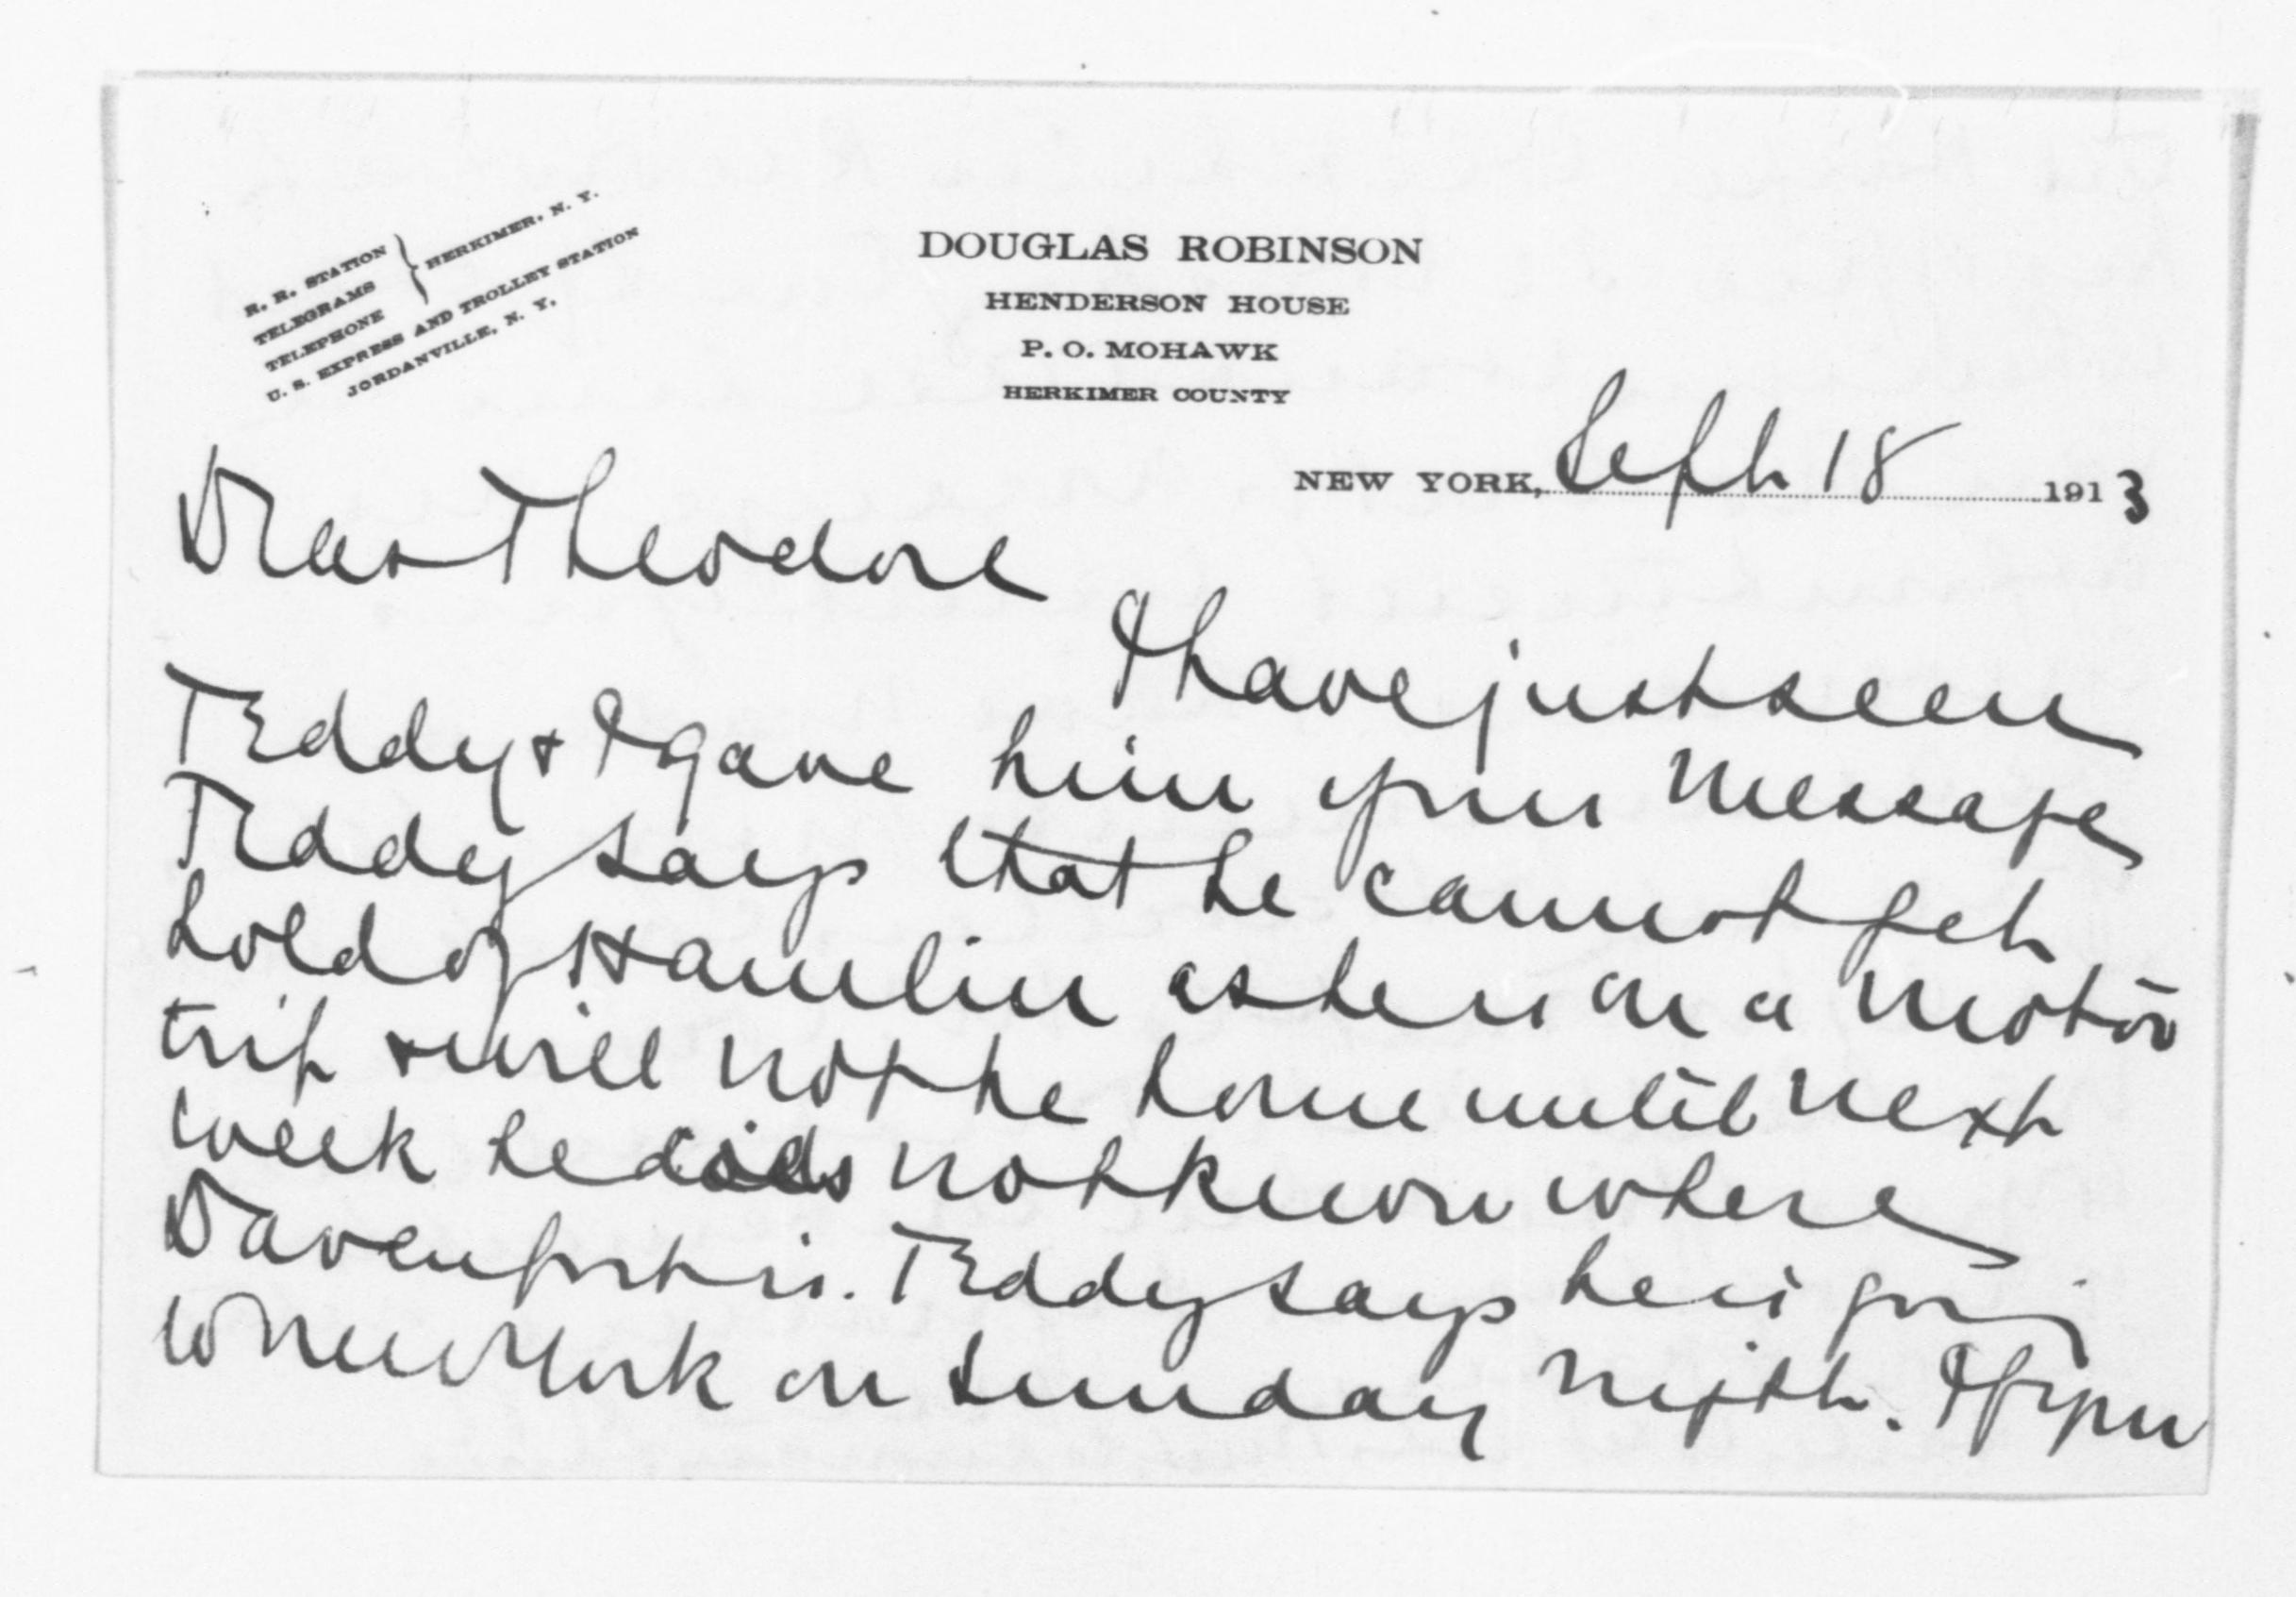 R. R. STATION
TELEGRAMS
TELEPHONE
} HERKIMER, N. Y.
U. S. EXPRESS AND TROLLEY STATION
JORDANVILLE, N. Y.
DOUGLAS ROBINSON
HENDERSON HOUSE
P. O. MOHAWK
HERKIMER COUNTY
NEW YORK, Sept 18 1913
Dear Theodore
I have just seen
Teddy & I gave him your message
Teddy says that he cannot get
hold of Hamlin as he is on a motor
trip & will not be home until next
week he does not know where
Davenport is. Teddy says he is going
to New York on Sunday night. If you